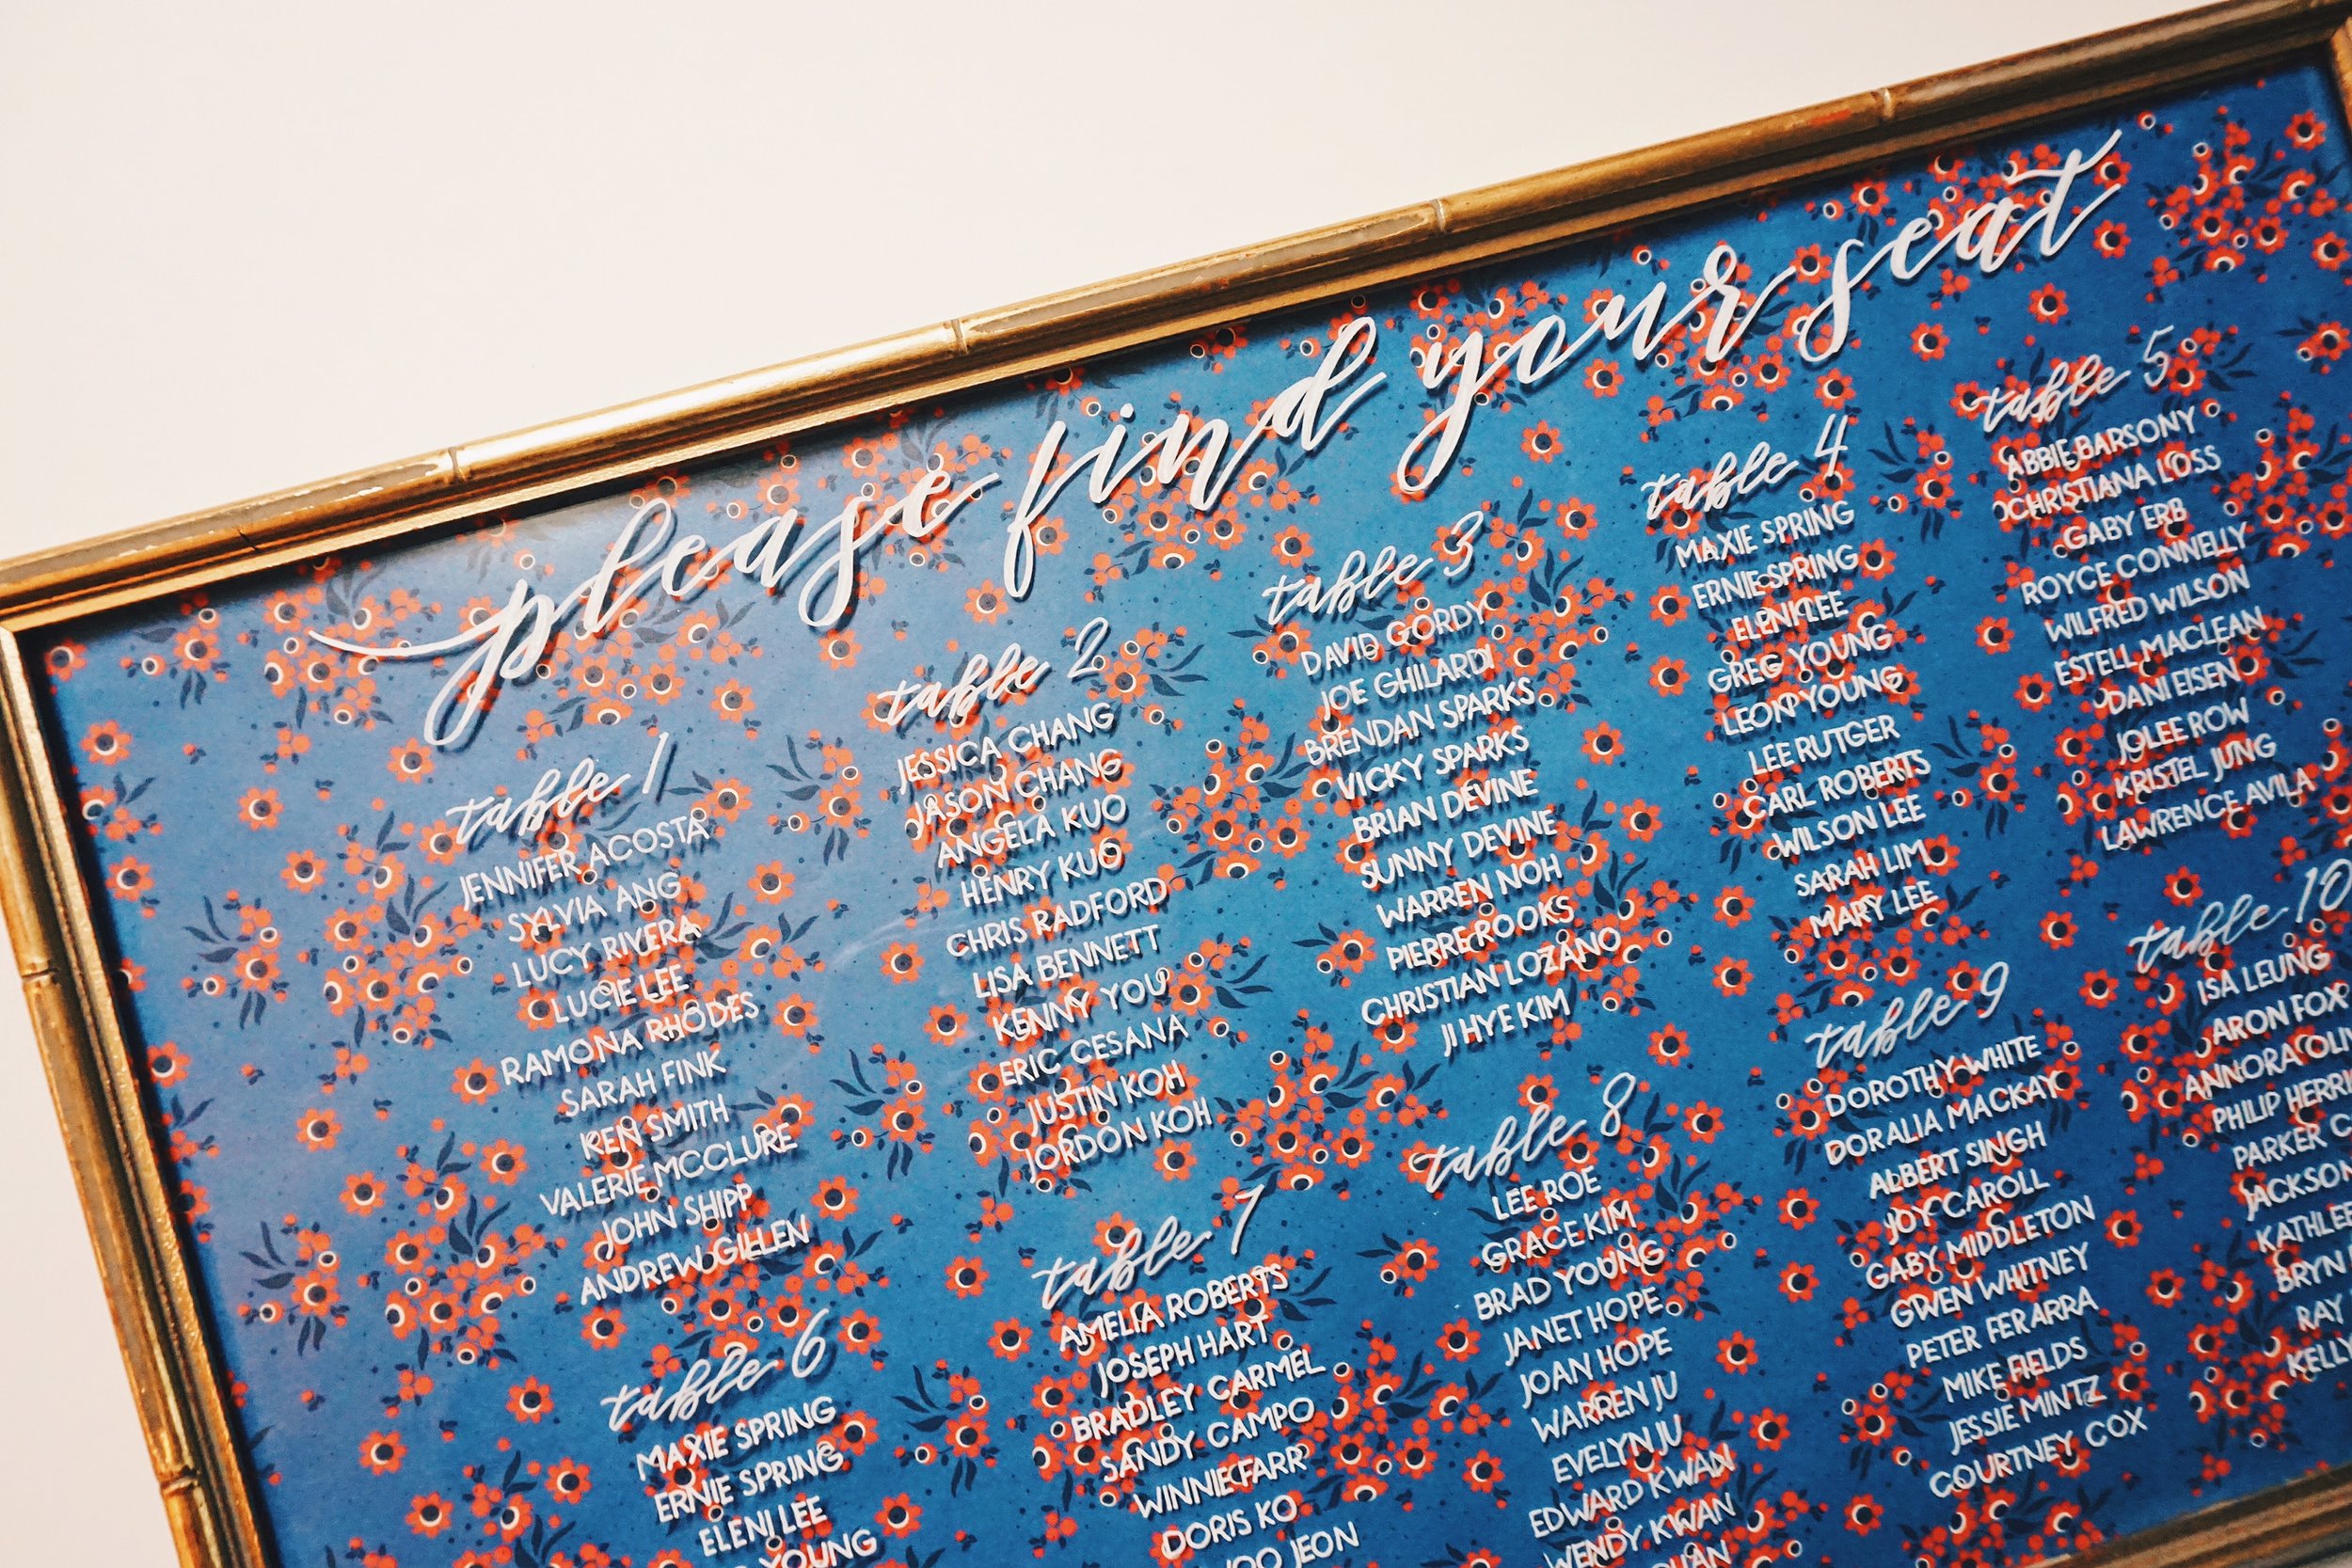 please find your seat
table 1
JENNIFER ACOSTA
SYLVIA ANG
LUCY RIVERA
LUCIE LEE
RAMONA RHODES
SARAH FINK
KEN SMITH
VALERIE MCCLURE
JOHN SHIPP
ANDREW GILLEN
table 2
JESSICA CHANG
JASON CHANG
ANGELA KUO
HENRY KUO
CHRIS RADFORD
LISA BENNETT
KENNY YOU
ERIC CESANA
JUSTIN KOH
JORDON KOH
table 3
DAVID GORDY
JOE GHILARDI
BRENDAN SPARKS
VICKY SPARKS
BRIAN DEVINE
SUNNY DEVINE
WARREN NOH
PIERRE ROOKS
CHRISTIAN LOZANO
JI HYE KIM
table 4
MAXIE SPRING
ERNIE SPRING
ELENI LEE
GREG YOUNG
LEON YOUNG
LEE RUTGER
CARL ROBERTS
WILSON LEE
SARAH LIM
MARY LEE
table 5
ABBIE BARSONY
CHRISTIANA LOSS
GABY ERB
ROYCE CONNELLY
WILFRED WILSON
ESTELL MACLEAN
DANI EISEN
JOLEE ROW
KRISTEL JUNG
LAWRENCE AVILA
table 6
MAXIE SPRING
ERNIE SPRING
ELENI LEE
YOUNG
table 7
AMELIA ROBERTS
JOSEPH HART
BRADLEY CARMEL
SANDY CAMPO
WINNIE FARR
DORIS KO
JEON
table 8
LEE ROE
GRACE KIM
BRAD YOUNG
JANET HOPE
JOAN HOPE
WARREN JU
EVELYN JU
EDWARD KWAN
WENDY KWAN
table 9
DOROTHY WHITE
DORALIA MACKAY
ALBERT SINGH
JOY CAROLL
GABY MIDDLETON
GWEN WHITNEY
PETER FERARRA
MIKE FIELDS
JESSIE MINTZ
COURTNEY COX
table 10
ISA LEUNG
ARON FOX
ANNORA
PHILIP
PARKER
RAY